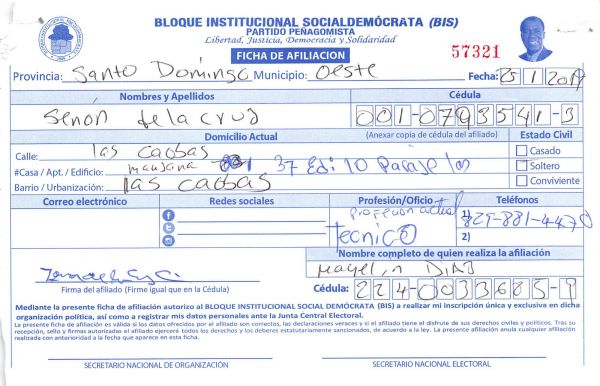 BLOQUE INSTITUCIONAL SOCIALDEMÓCRATA (BIS)
PARTIDO PEÑAGOMISTA
Libertad, Justicia, Democracia y Solidaridad
FICHA DE AFILIACION
57321
Provincia: Santo Domingo Municipio: Oeste Fecha: 25/1/2019
Nombres y Apellidos Cédula
Senón de la cruz 001-0793541-3
Domicilio Actual (Anexar copia de cédula del afiliado) Estado Civil
Calle: las caobas Casado
#Casa / Apt. / Edificio: manzana 37 Edi 10 Soltero
Barrio / Urbanización: las caobas Conviviente
Correo electrónico Redes sociales Profesión/Oficio Teléfonos
profesion actual 1) 829-881-4470
tecnico 2)
Nombre completo de quien realiza la afiliación
Mayelin DIAZ
Firma del afiliado (Firme igual que en la Cédula) Cédula: 224-0033685-9
Mediante la presente ficha de afiliación autorizo al BLOQUE INSTITUCIONAL SOCIAL DEMÓCRATA (BIS) a realizar mi inscripción única y exclusiva en dicha
organización política, así como a registrar mis datos personales ante la Junta Central Electoral.
La presente ficha de afiliación es válida si los datos ofrecidos por el afiliado son correctos, las declaraciones veraces y si el afiliado tiene el disfrute de sus derechos civiles y políticos. Tras su
recepción, sello y firmas autorizadas el afiliado ejercerá todos los derechos y los deberes estatutariamente sancionados, de acuerdo a la ley. La presente afiliación anula cualquier afiliación
realizada con anterioridad a la fecha que aparece en esta ficha.
SECRETARIO NACIONAL DE ORGANIZACIÓN SECRETARIO NACIONAL ELECTORAL